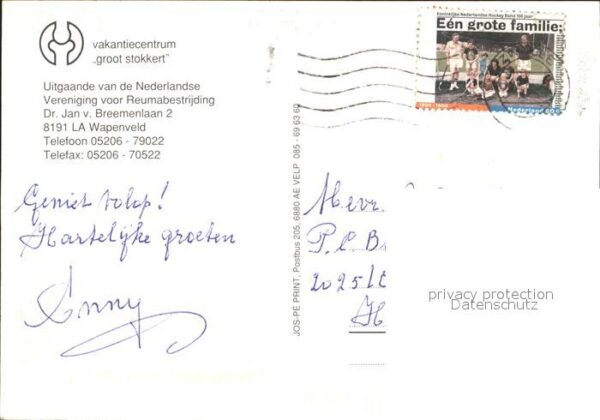 vakantiecentrum
„groot stokkert"
Uitgaande van de Nederlandse
Vereniging voor Reumabestrijding
Dr. Jan v. Breemenlaan 2
8191 LA Wapenveld
Telefoon 05206 - 79022
Telefax: 05206 - 70522
Geniet volop!
Hartelijke groeten
Enny
JOS-PÉ PRINT, Postbus 205, 6880 AE VELP 085 - 69 63 60
Koninklijke Nederlandse Hockey Bond 100 jaar
Eén grote familie:
Nederland
Mevr.
P.C B
2025
H
privacy protection
Datenschutz